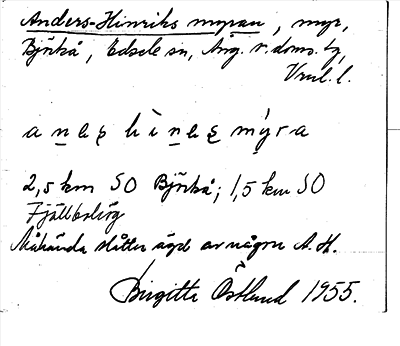 Anders-Hinriks myran, myr,
Björkå, Edsele sn, Ång. v. doms. tg,
a n e ş h i n e ş mýra
2,5 km SO Björkå; 1,5 km SO
Fjällboberg
Måhända slåtter ägd av någon A. H.
Birgitta Östlund 1955.